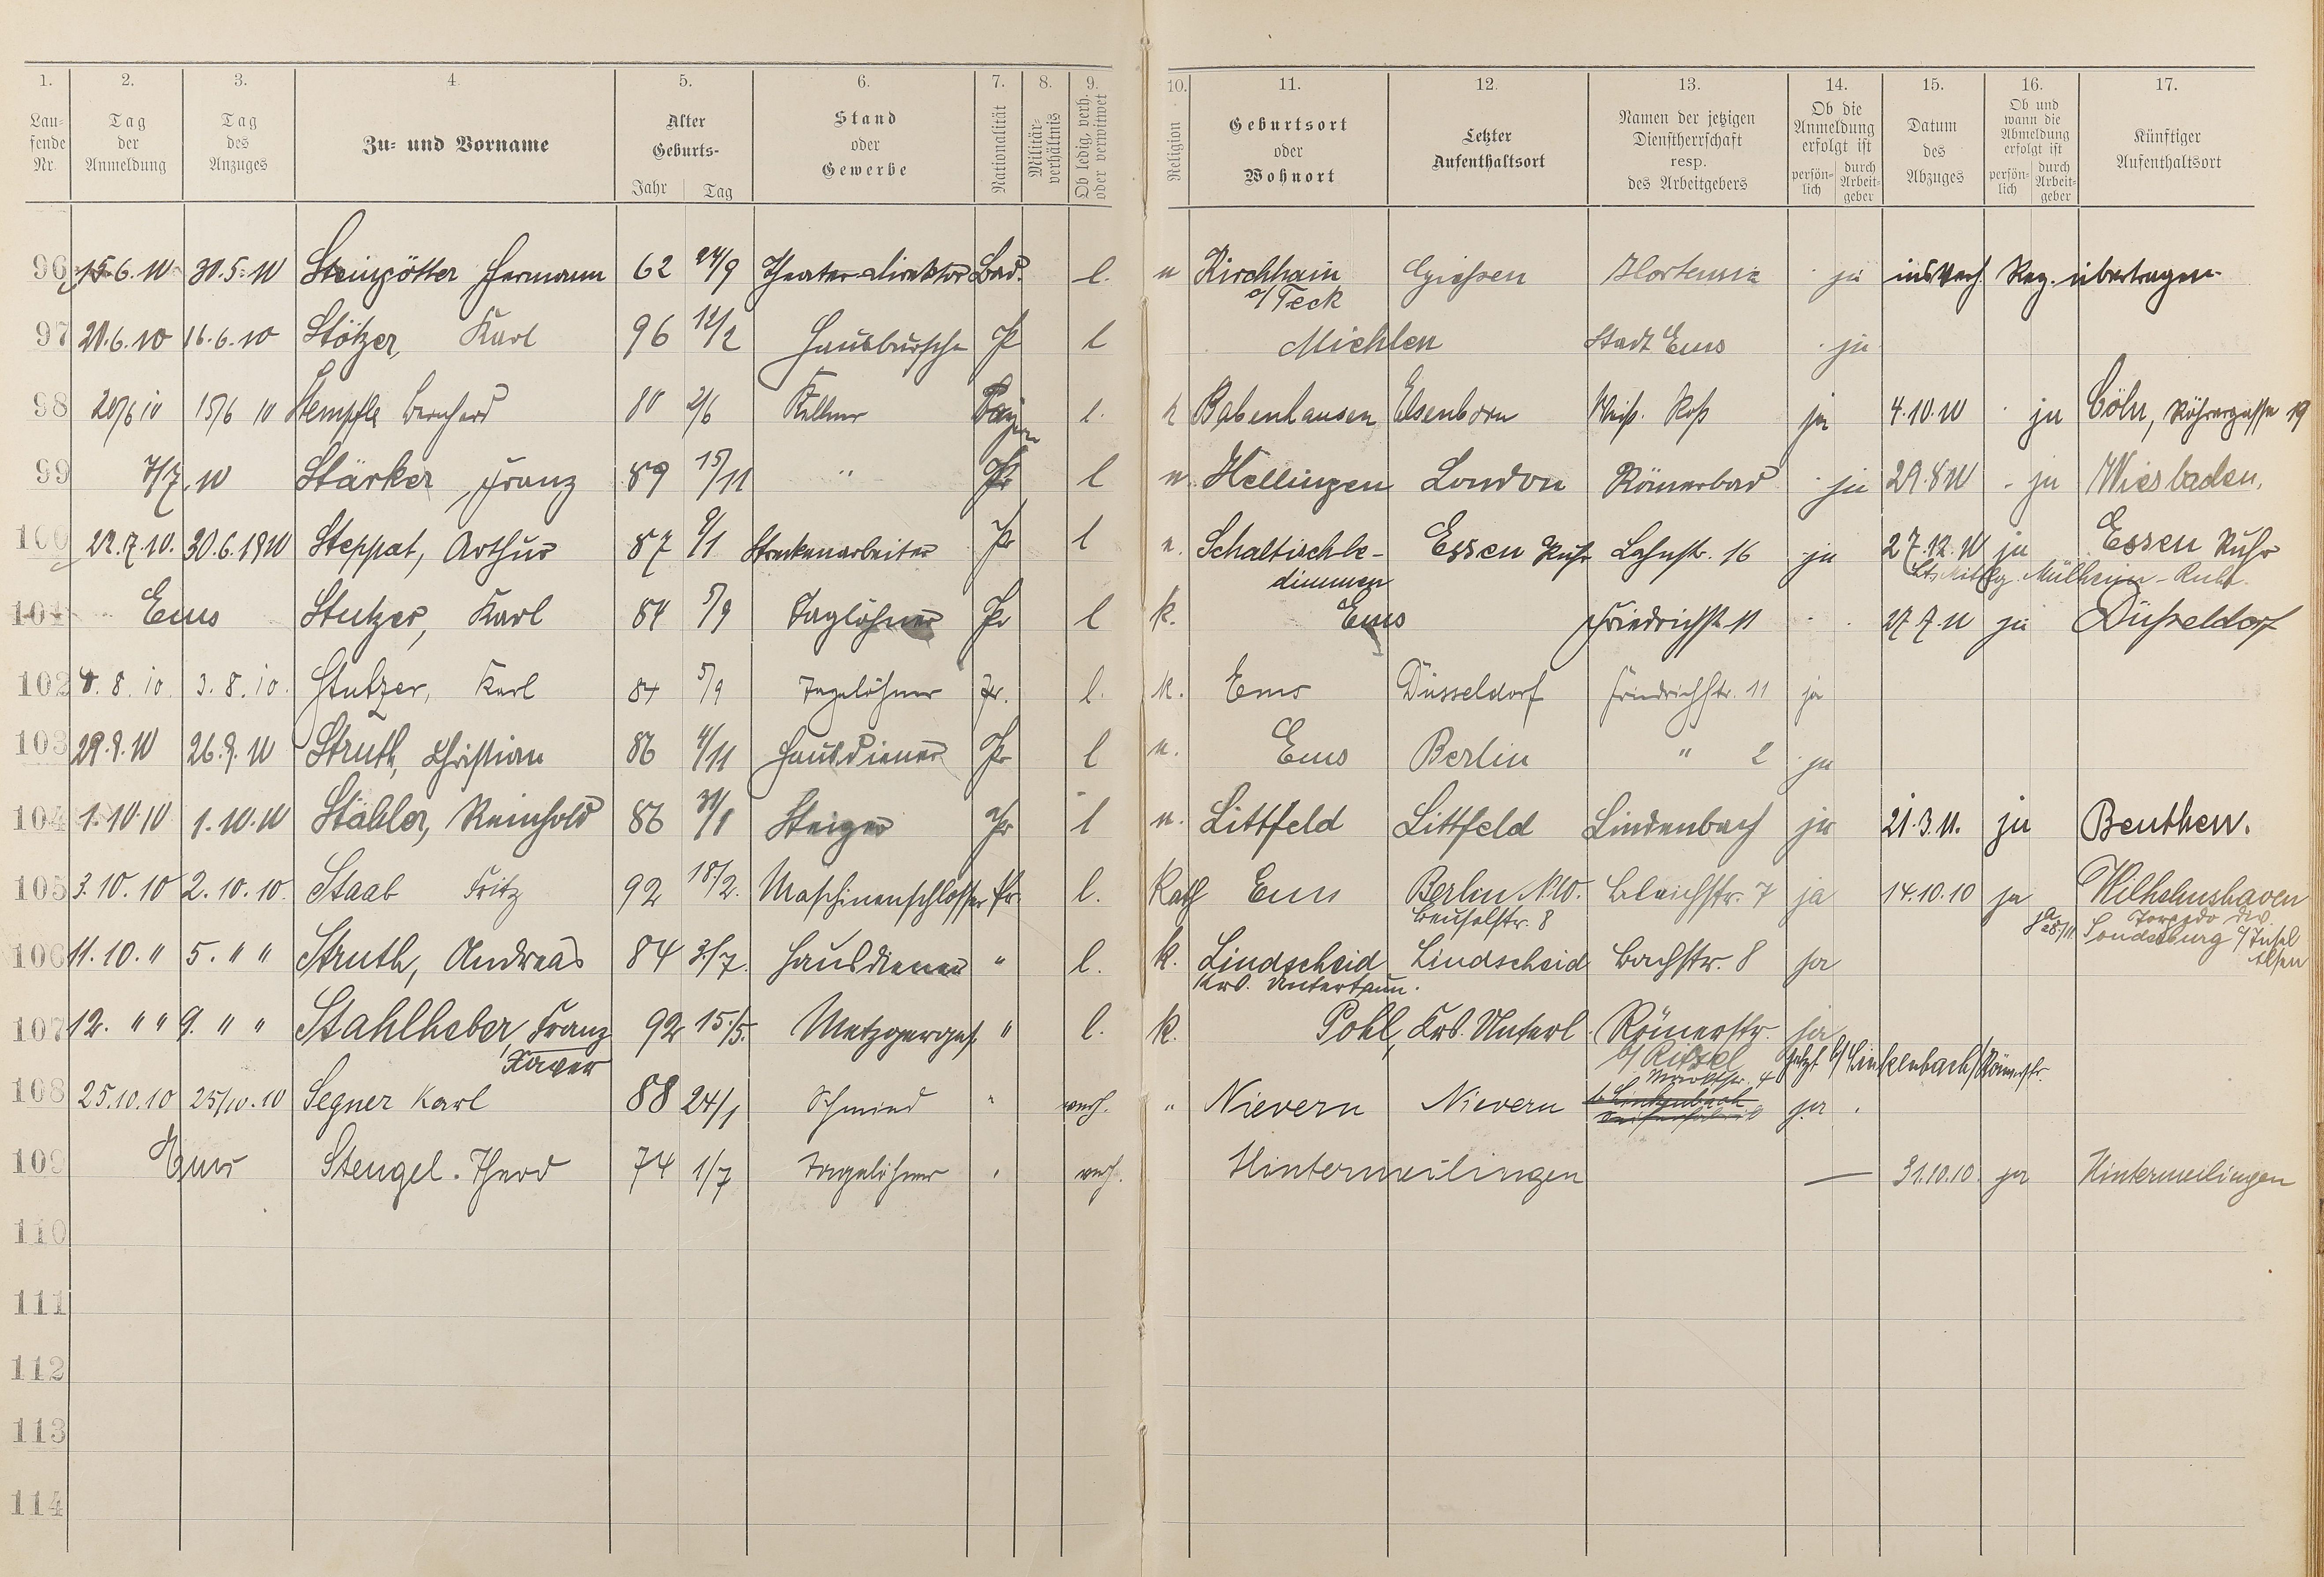 1. 2. 3. 4. 5. 6. 7. 8. 9. 10. 11. 12. 13. 14. 15. 16. 17.
Lau-
fende
Nr.
Tag
der
Anmeldung
Tag
des
Anzuges
Zu- und Vorname
Alter
Geburts-
Jahr Tag
Stand
oder
Gewerbe
Nationalität
Militär-
verhältnis
Ob ledig, verh.
oder verwitwet
Religion
Geburtsort
oder
Wohnort
Letzter
Aufenthaltsort
Namen der jetzigen
Dienstherrschaft
resp.
des Arbeitgebers
Ob die
Anmeldung
erfolgt ist
persön-
lich
durch
Arbeit-
geber
Datum
des
Abzuges
Ob und
wann die
Abmeldung
erfolgt ist
persön-
lich
durch
Arbeit-
geber
Künftiger
Aufenthaltsort
96 15.6.10 30.5.10 Steingötter Hermann 62 24/9 Theater-Direktor Bad. l. Kirchhain Giessen Hortensia ja Reg. übertragen
o/Teck
97 20.6.10 16.6.10 Stötzer, Karl 96 12/2 Hausbursche P l Miehlen Stadt Ems ja
98 20/6 10 15/6 10 Stempfle Bernhard 80 2/6 Kellner Bayern l. Babenhausen Elsenborn Weiß. Roß ja 4.10.10 ja Cöln, 19
99 7/7.10 Stärker Franz 89 15/11 " Pr l Hellingen London Römerbad ja 29.8.10 ja Wiesbaden.
100 22.7.10. 30.6.1910 Steppat, Arthur 87 9/1 Streckenarbeiter Pr l Schaltischle- Essen Ruhr Lahnstr. 16 ja 27.12.10 ja Essen Ruhr
dimmen Mülheim-Ruhr.
101 Ems Stutzer, Karl 84 5/9 Taglöhner Pr l k. Ems Friedrichstr. 11 27.7.10 ja Düsseldorf
102 8.8.10. 3.8.10. Stutzer, Karl 84 5/9 Tagelöhner Pr. l. k. Ems Düsseldorf Friedrichstr. 11 ja
103 29.9.10 26.9.10 Struth, Christian 86 4/11 Hausdiener Pr l Ems Berlin " 2 ja
104 1.10.10 1.10.10 Stähler, Reinhold 86 31/1 Steiger Pr l Littfeld Littfeld Lindenbach ja 21.3.11. ja Beuthen.
105 3.10.10 2.10.10. Staab Fritz 92 18/2. Maschinenschlosser Pr. l. Kath Ems Berlin N.W. Bleichstr. 7 ja 14.10.10 ja Wilhelmshaven
Beuselstr. 8 ja Torpedo Div.
106 11.10." 5." " Struth, Andreas 84 3/7. Hausdiener " l. k. Lindscheid Lindscheid Bachstr. 8 ja Sonderburg a/Insel
Krs. Untertaun. Alsen
107 12. " " 9. " " Stahlheber, Franz 92 15/5. Metzgerges. " l. k. Pohl, Krs. Unterl. Römerstr. ja
Xaver b/ Ritzel jetzt b/ Linkenbach/Römerstr.
Marktstr. 4
108 25.10.10 25/10.10 Segner Karl 88 24/1 Schmied " verh. " Nievern Nievern b. Linkenbach ja
109 Ems Stengel. Theod 74 1/7 Tagelöhner " verh. Hintermeilingen — 31.10.10. ja Hintermeilingen
110
111
112
113
114